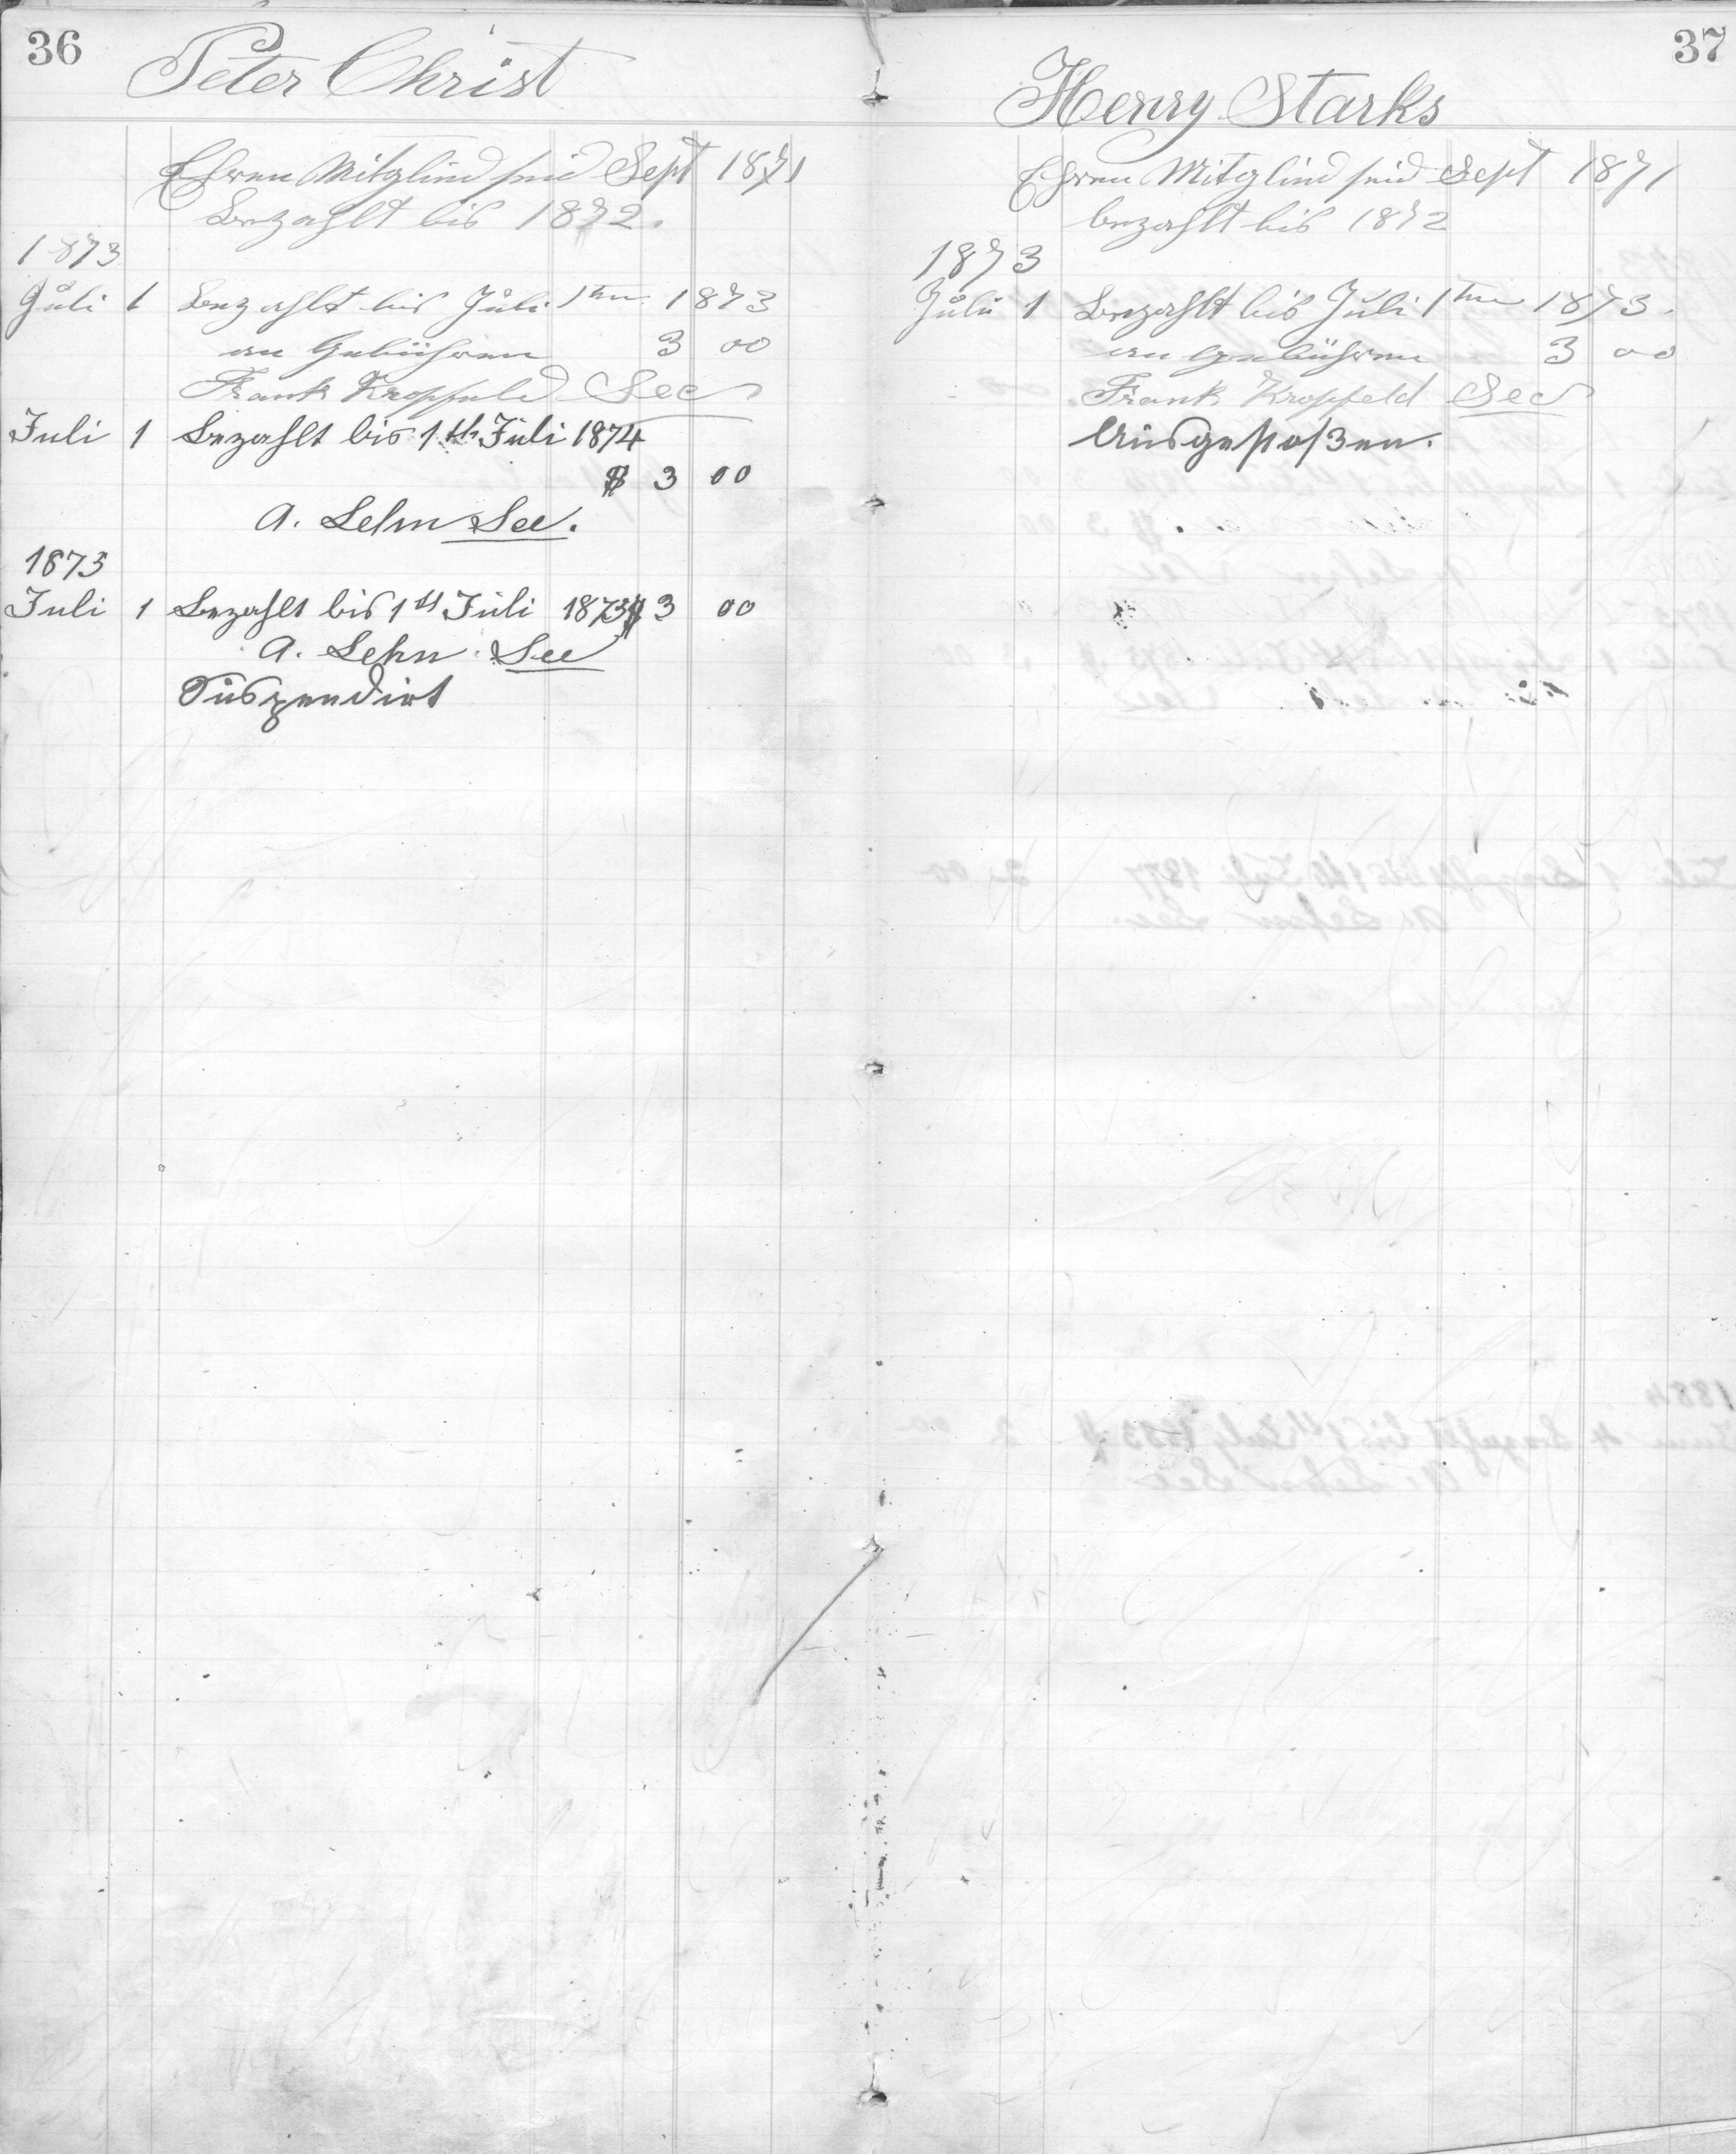 36
Peter Christ
Ehren Mitglied seid Sept 1871
Bezahlt bis 1872.
1873
Juli 1 Bezahlt bis Juli 1ten 1873
an Gebühren 3 00
Frank Kropfeld Sec
Juli 1 Bezahlt bis 1th Juli 1874
$ 3 00
A. Lehn Sec.
1875
Juli 1 Bezahlt bis 1th Juli 1875 $ 3 00
A. Lehn Sec
Suspendirt
37
Henry Starks
Ehren Mitglied seid Sept 1871
bezahlt bis 1872
1873
Juli 1 Bezahlt bis Juli 1ten 1873.
an Gebühren 3 00
Frank Kropfeld Sec
Ausgestoßen.